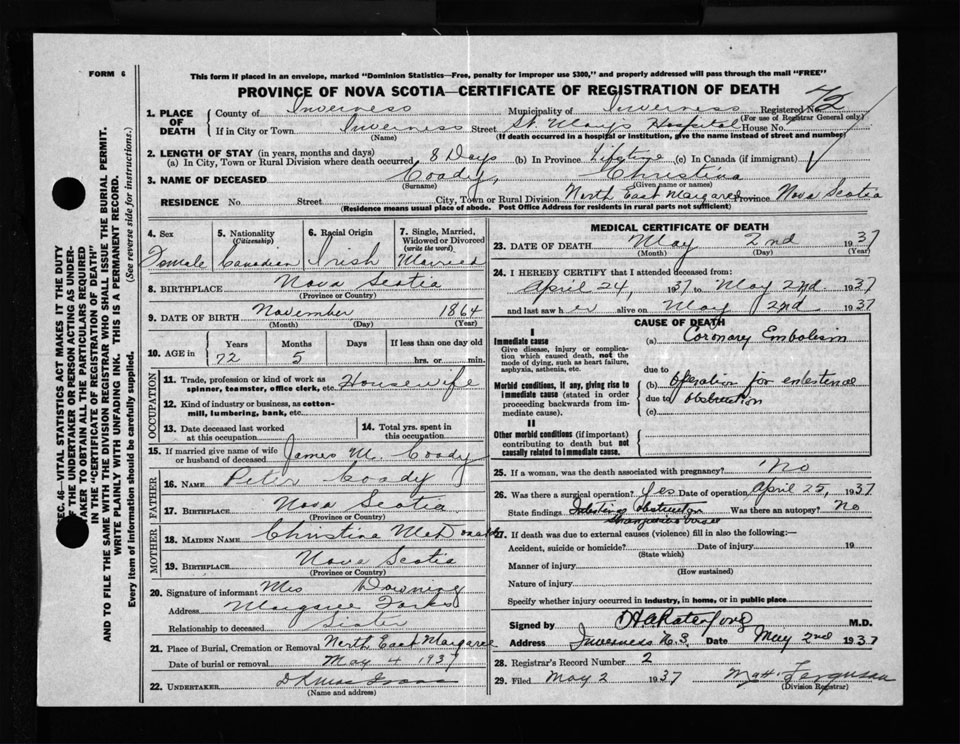 FORM 6
This form if placed in an envelope, marked "Dominion Statistics—Free, penalty for improper use $300," and properly addressed will pass through the mail "FREE"
PROVINCE OF NOVA SCOTIA—CERTIFICATE OF REGISTRATION OF DEATH
1. PLACE OF DEATH
County of Inverness Municipality of Inverness Registered No.
(For use of Registrar General only)
If in City or Town Inverness Street St Marys Hospital House No.
(Name) (If death occurred in a hospital or institution, give the name instead of street and number)
2. LENGTH OF STAY (in years, months and days)
(a) In City, Town or Rural Division where death occurred 8 Days (b) In Province Lifetime (c) In Canada (if immigrant)
3. NAME OF DECEASED Coady, Christina
(Surname) (Given name or names)
RESIDENCE No. Street City, Town or Rural Division North East Margaree Province Nova Scotia
(Residence means usual place of abode. Post Office Address for residents in rural parts not sufficient)
4. Sex
Female
5. Nationality (Citizenship)
Canadian
6. Racial Origin
Irish
7. Single, Married, Widowed or Divorced (write the word)
Married
8. BIRTHPLACE Nova Scotia
(Province or Country)
9. DATE OF BIRTH November 1864
(Month) (Day) (Year)
10. AGE in
Years Months Days If less than one day old
72 5 hrs. or min.
OCCUPATION
11. Trade, profession or kind of work as spinner, teamster, office clerk, etc. Housewife
12. Kind of industry or business, as cotton-mill, lumbering, bank, etc.
13. Date deceased last worked at this occupation
14. Total yrs. spent in this occupation
15. If married give name of wife or husband of deceased James M. Coady
FATHER
16. NAME Peter Coady
17. BIRTHPLACE Nova Scotia
(Province or Country)
MOTHER
18. MAIDEN NAME Christina McDonald
19. BIRTHPLACE Nova Scotia
(Province or Country)
20. Signature of informant Mrs
Address Margaree Forks
Relationship to deceased Sister
21. Place of Burial, Cremation or Removal North East Margaree
Date of burial or removal May 4 1937
22. UNDERTAKER
(Name and address)
MEDICAL CERTIFICATE OF DEATH
23. DATE OF DEATH May 2nd 1937
(Month) (Day) (Year)
24. I HEREBY CERTIFY that I attended deceased from:
April 24, 1937 to May 2nd 1937
and last saw her alive on May 2nd 1937
CAUSE OF DEATH
I
Immediate cause
Give disease, injury or complication which caused death, not the mode of dying, such as heart failure, asphyxia, asthenia, etc.
(a) Coronary Embolism
due to
Morbid conditions, if any, giving rise to immediate cause (stated in order proceeding backwards from immediate cause).
(b) Operation for entestinal
due to obstruction
(c)
II
Other morbid conditions (if important) contributing to death but not causally related to immediate cause.
25. If a woman, was the death associated with pregnancy? No
26. Was there a surgical operation? Yes Date of operation April 25, 1937
State findings Intestinal obstruction Was there an autopsy? No
27. If death was due to external causes (violence) fill in also the following:—
Accident, suicide or homicide? Date of injury 19
(State which)
Manner of injury
(How sustained)
Nature of injury
Specify whether injury occurred in industry, in home, or in public place
Signed by M.D.
Address Inverness N.S. Date May 2nd 1937
28. Registrar's Record Number 2
29. Filed May 2 1937 Ferguson
(Division Registrar)
SEC. 46—VITAL STATISTICS ACT MAKES IT THE DUTY
OF THE UNDERTAKER OR PERSON ACTING AS UNDERTAKER TO OBTAIN ALL THE PARTICULARS REQUIRED
IN THE "CERTIFICATE OF REGISTRATION OF DEATH"
AND TO FILE THE SAME WITH THE DIVISION REGISTRAR WHO SHALL ISSUE THE BURIAL PERMIT.
WRITE PLAINLY WITH UNFADING INK. THIS IS A PERMANENT RECORD.
Every item of information should be carefully supplied. (See reverse side for instructions.)